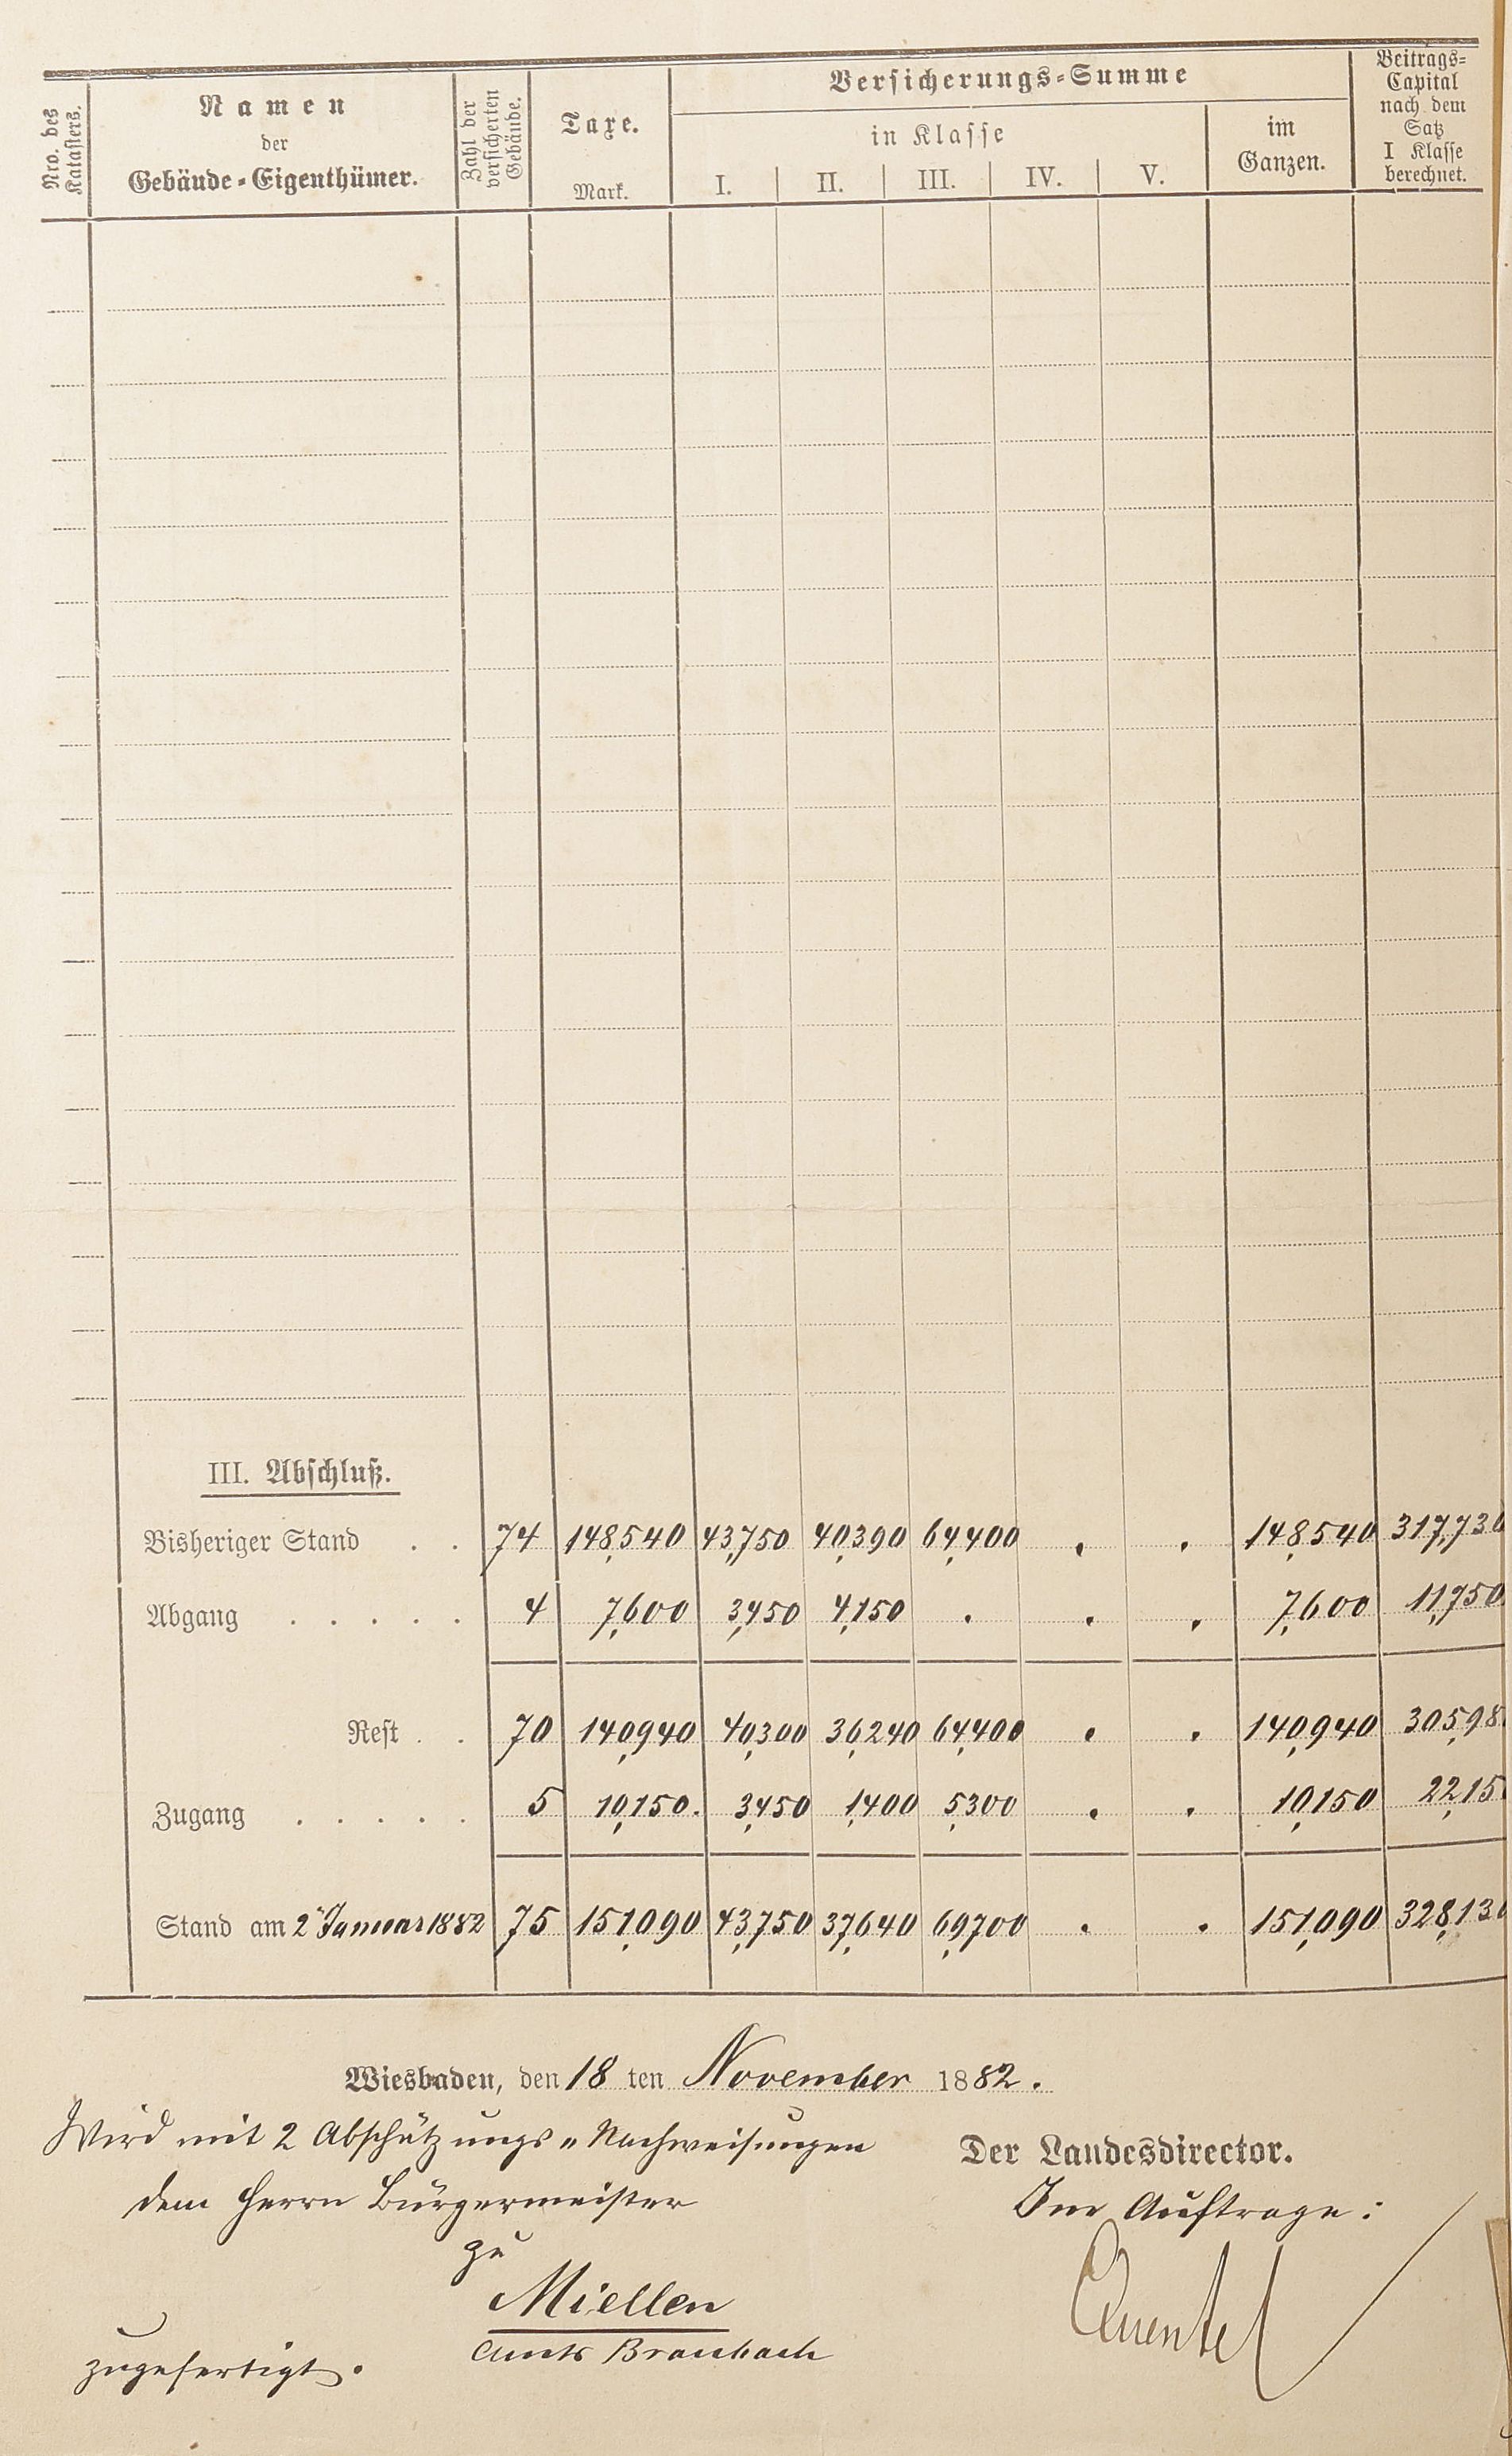 Nro. des Katasters.
Namen
der
Gebäude-Eigenthümer.
Zahl der versicherten Gebäude.
Taxe.
Mark.
Versicherungs-Summe
in Klasse
I. II. III. IV. V.
im
Ganzen.
Beitrags-
Capital
nach dem
Satz
I Klasse
berechnet.
III. Abschluß.
Bisheriger Stand . . 74 148,540 43,750 40,390 64,400 . . 148,540 317,730
Abgang . . . . . 4 7,600 3,450 4,150 . . . 7,600 11,750
Rest . . 70 140,940 40,300 36,240 64,400 . . 140,940 305,98
Zugang . . . . 5 10,150. 3,450 1,400 5,300 . . 10,150 22,15
Stand am 2ⁿ Januar 1882 75 151,090 43,750 37,640 69,700 . . 151,090 328,130
Wiesbaden, den 18 ten November 1882.
Wird mit 2 Abschätzungs-Nachweisungen
dem Herrn Bürgermeister
zu
Miellen
Amts Braubach
zugefertigt.
Der Landesdirector.
Im Auftrage: